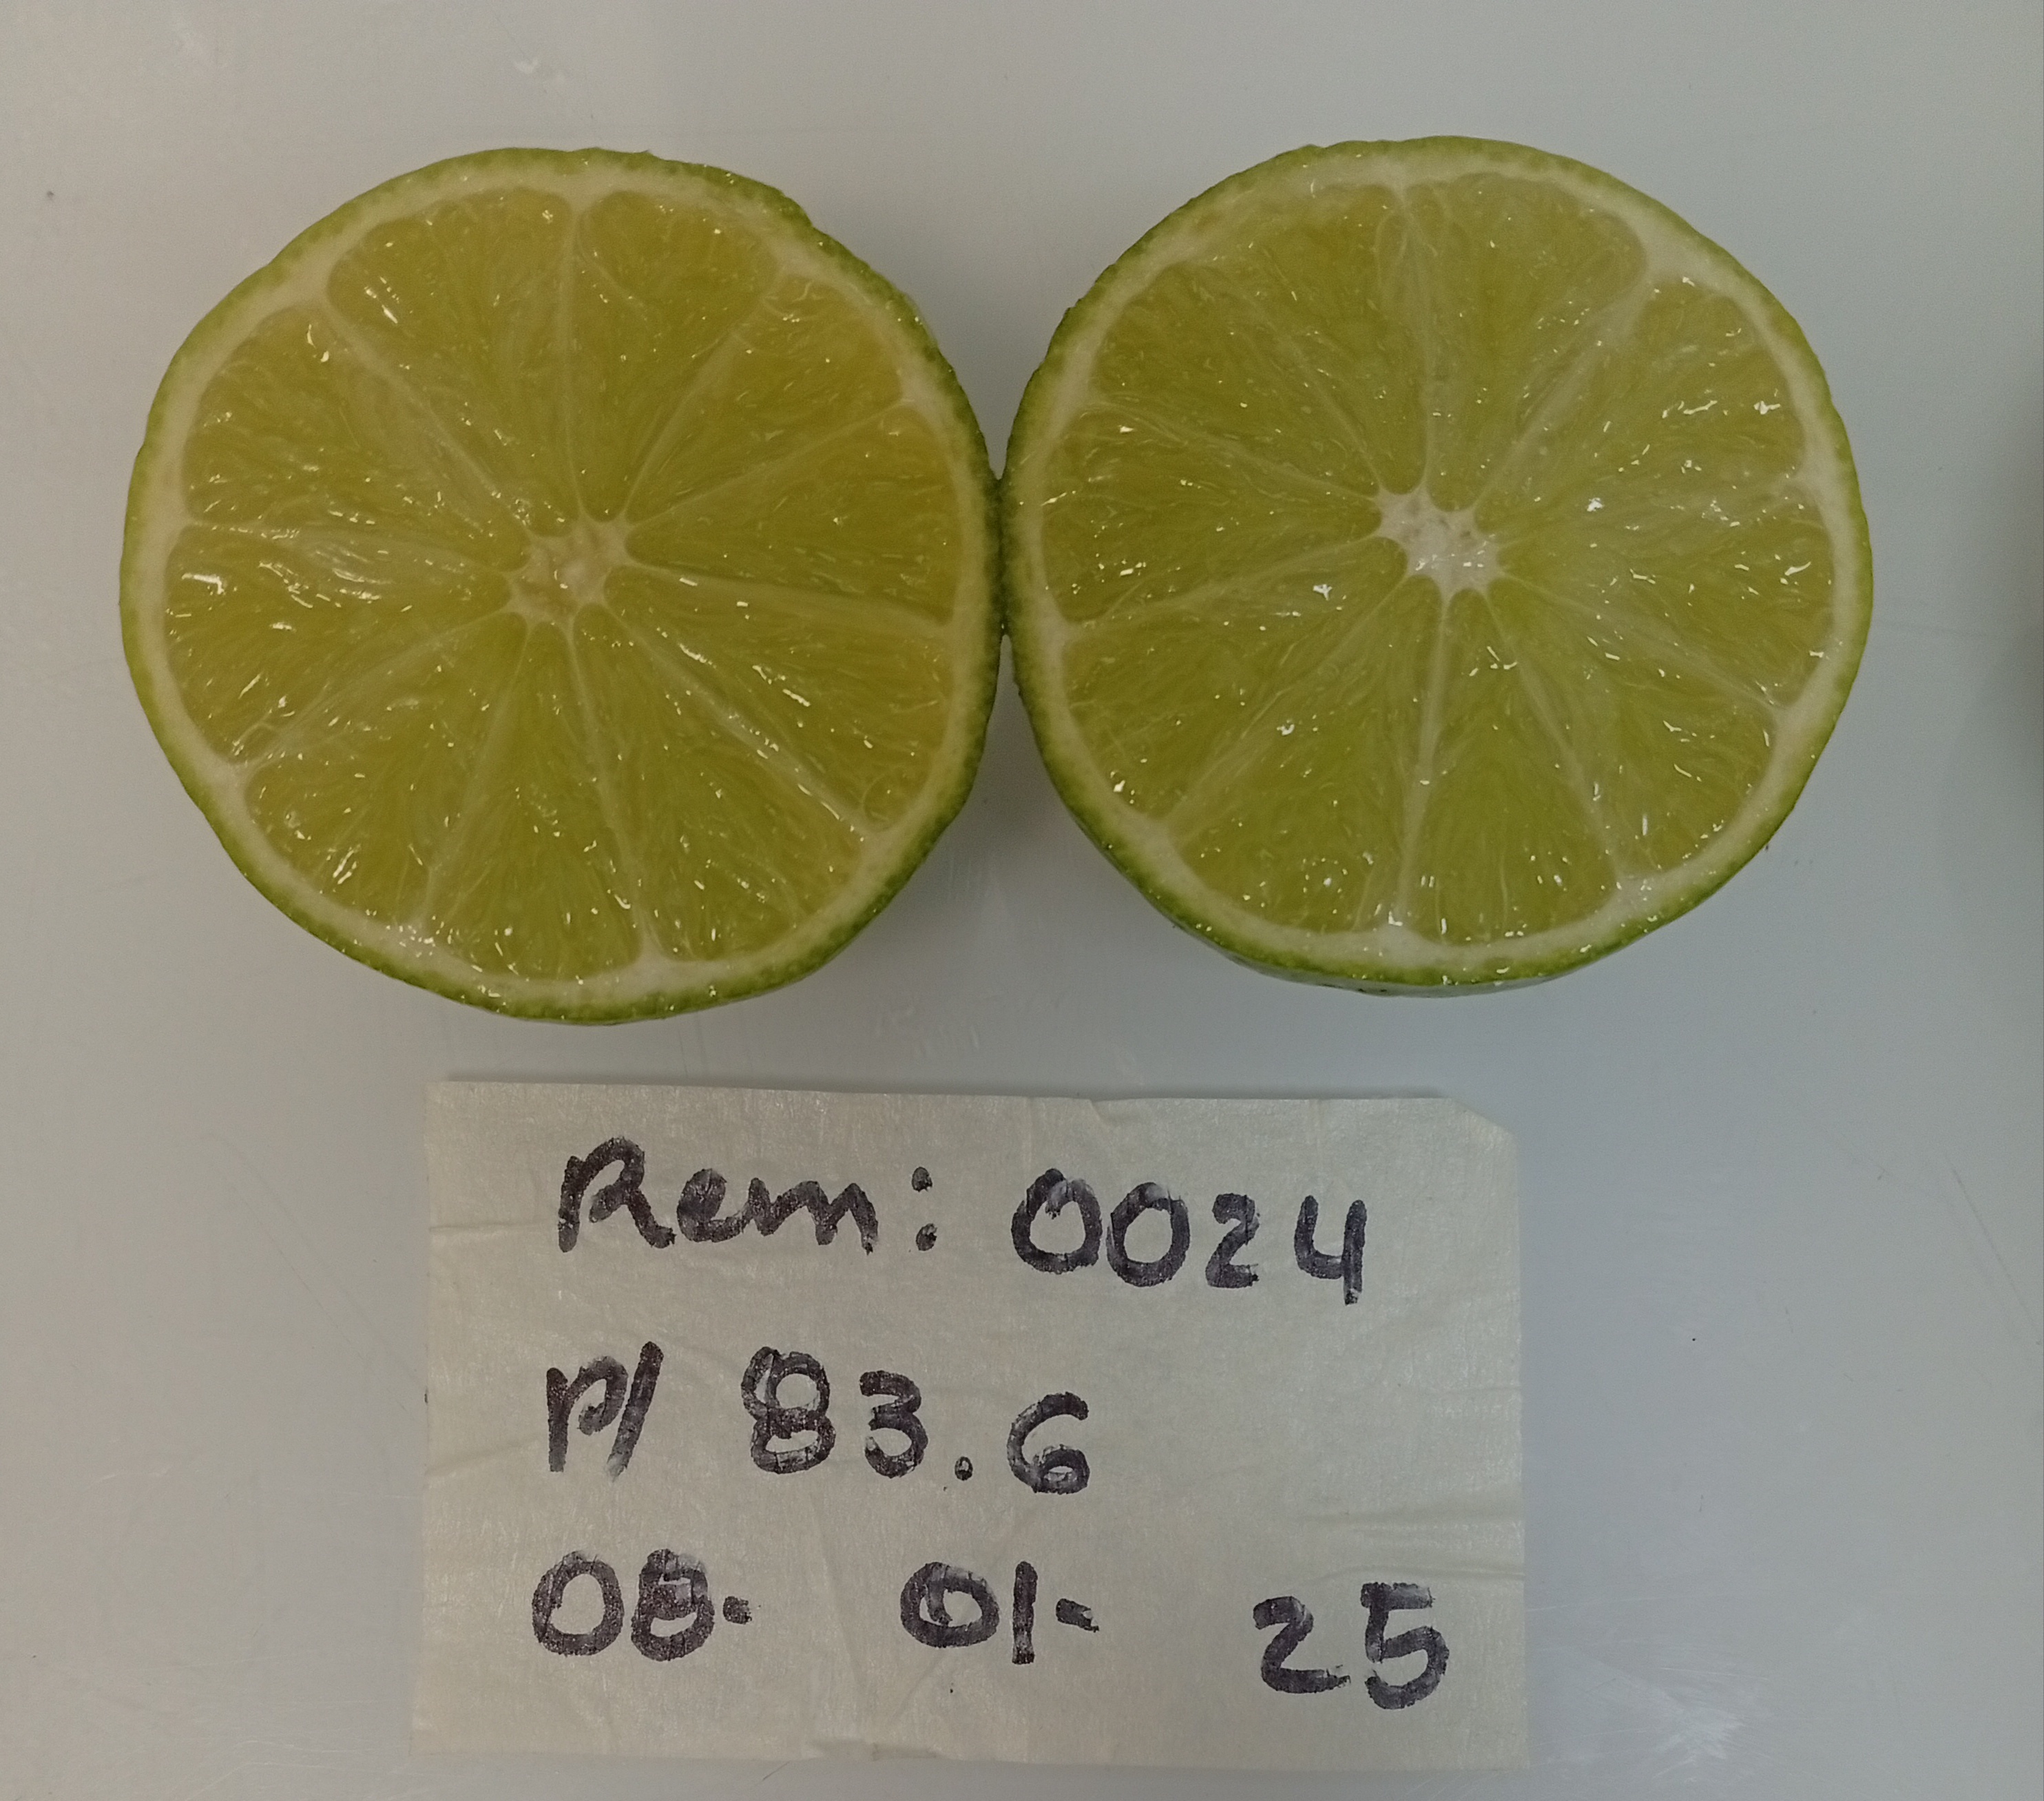 Rem: 0024
P/ 83.6
08- 01- 25